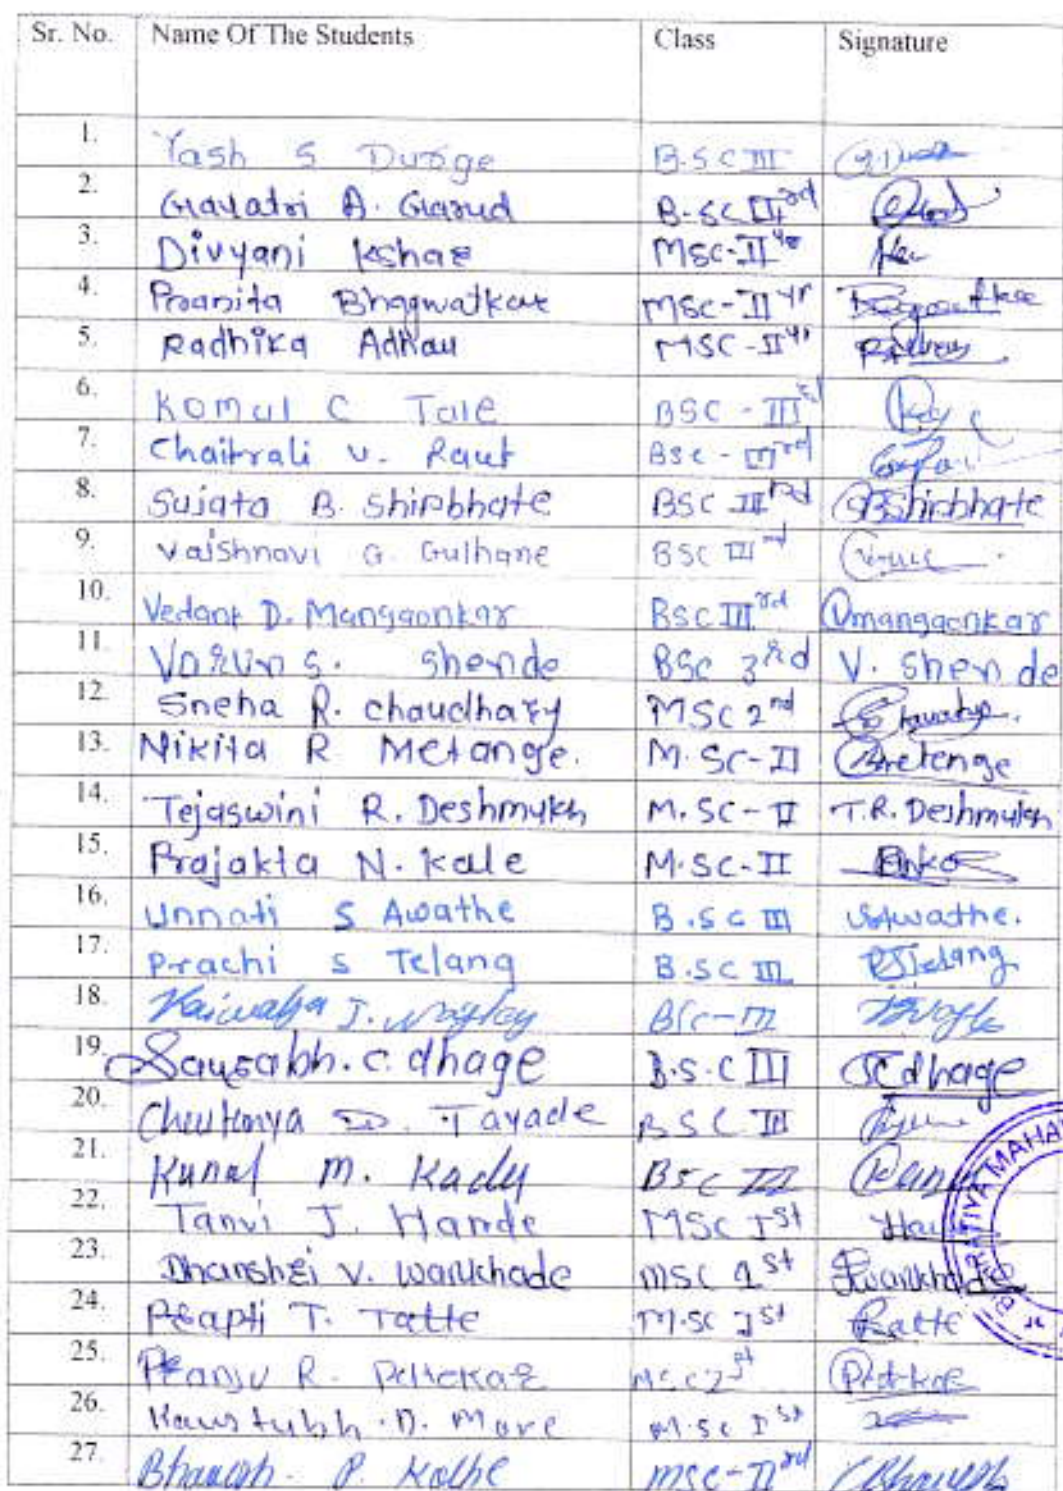 Sr. No. Name Of The Students Class Signature
1. Yash S Durge B.SC III
2. Gayatri A. Garud B-SC III rd
3. Divyani Kshar MSC-II yr
4. Pranita Bhagwatkar MSC-II yr
5. Radhika Adhau MSC-II yr
6. Komal C Tale BSC - III rd
7. Chaitrali V. Raut BSc - III rd
8. Sujata B. Shirbhate BSC III rd BShirbhate
9. Vaishnavi G. Gulhane BSC III rd
10. Vedant D. Mangaonkar BSC III rd Vmangaonkar
11. Varun S. Shende BSc 3rd V. Shende
12. Sneha R. chaudhary MSC 2nd
13. Nikita R Metange. M.SC-II Metenge
14. Tejaswini R. Deshmukh M.SC-II T.R. Deshmukh
15. Prajakta N. Kale M.SC-II
16. Unnati S Awathe B.SC III USAwathe.
17. Prachi S Telang B.SC III PSTelang
18. J. BSc-III
19. Saurabh.c.dhage B.S.C III SCdhage
20. Tayade BSC III
21. Kunal M. BSc III
22. Tanvi J. Hande MSC Ist
23. Dhanshri V. Wankhade MSC 1st Wankhade
24. Prapti T. Tatte M.SC Ist
25. R.
26. Kaustubh.D. More M.Sc Ist
27. P. Kolhe MSC-II